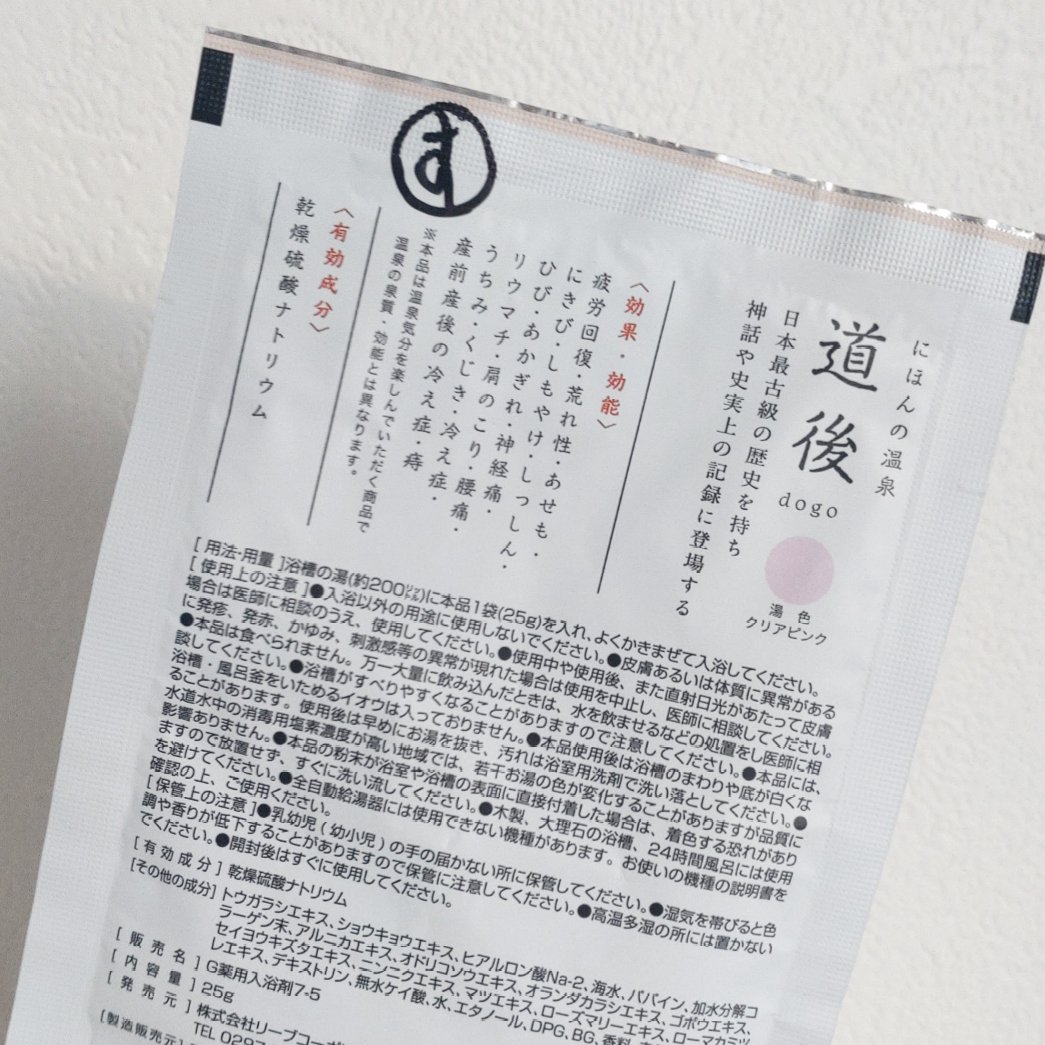 す
にほんの温泉
道後
dogo
湯色
クリアピンク
日本最古級の歴史を持ち
神話や史実上の記録に登場する
〈効果・効能〉
疲労回復・荒れ性・あせも・
にきび・しもやけ・しっしん・
ひび・あかぎれ・神経痛・
リウマチ・肩のこり・腰痛・
うちみ・くじき・冷え症・
産前産後の冷え症・痔
※本品は温泉気分を楽しんでいただく商品で
温泉の泉質・効能とは異なります。
〈有効成分〉
乾燥硫酸ナトリウム
[ 用法・用量 ]浴槽の湯(約200リットル)に本品1袋(25g)を入れ、よくかきまぜて入浴してください。
[ 使用上の注意 ]●入浴以外の用途に使用しないでください。●皮膚あるいは体質に異常がある
場合は医師に相談のうえ、使用してください。●使用中や使用後、また直射日光があたって皮膚
に発疹、発赤、かゆみ、刺激感等の異常が現れた場合は使用を中止し、医師に相談してください。
●本品は食べられません。万一大量に飲み込んだときは、水を飲ませるなどの処置をし医師に相
談してください。●浴槽がすべりやすくなることがありますので注意してください。●本品には、
浴槽・風呂釜をいためるイオウは入っておりません。●本品使用後は浴槽のまわりや底が白くな
ることがあります。使用後は早めにお湯を抜き、汚れは浴室用洗剤で洗い落としてください。●
水道水中の消毒用塩素濃度が高い地域では、若干お湯の色が変化することがありますが品質に
影響ありません。●本品の粉末が浴室や浴槽の表面に直接付着した場合は、着色する恐れがあり
ますので放置せず、すぐに洗い流してください。●木製、大理石の浴槽、24時間風呂には使用
を避けてください。●全自動給湯器には使用できない機種があります。お使いの機種の説明書を
確認の上、ご使用ください。
[ 保管上の注意 ]●乳幼児(幼小児)の手の届かない所に保管してください。●湿気を帯びると色
調や香りが低下することがありますので保管に注意してください。●高温多湿の所には置かない
でください。●開封後はすぐに使用してください。
[ 有効成分 ] 乾燥硫酸ナトリウム
[その他の成分] トウガラシエキス、ショウキョウエキス、ヒアルロン酸Na-2、海水、パパイン、加水分解コ
ラーゲン末、アルニカエキス、オドリコソウエキス、オランダカラシエキス、ゴボウエキス、
セイヨウキズタエキス、ニンニクエキス、マツエキス、ローズマリーエキス、ローマカミツ
レエキス、デキストリン、無水ケイ酸、水、エタノール、DPG、BG、香料
[ 販売名 ] G薬用入浴剤7-5
[ 内容量 ] 25g
[ 発売元 ] 株式会社リーブコーポ
TEL 0297
[製造販売元]